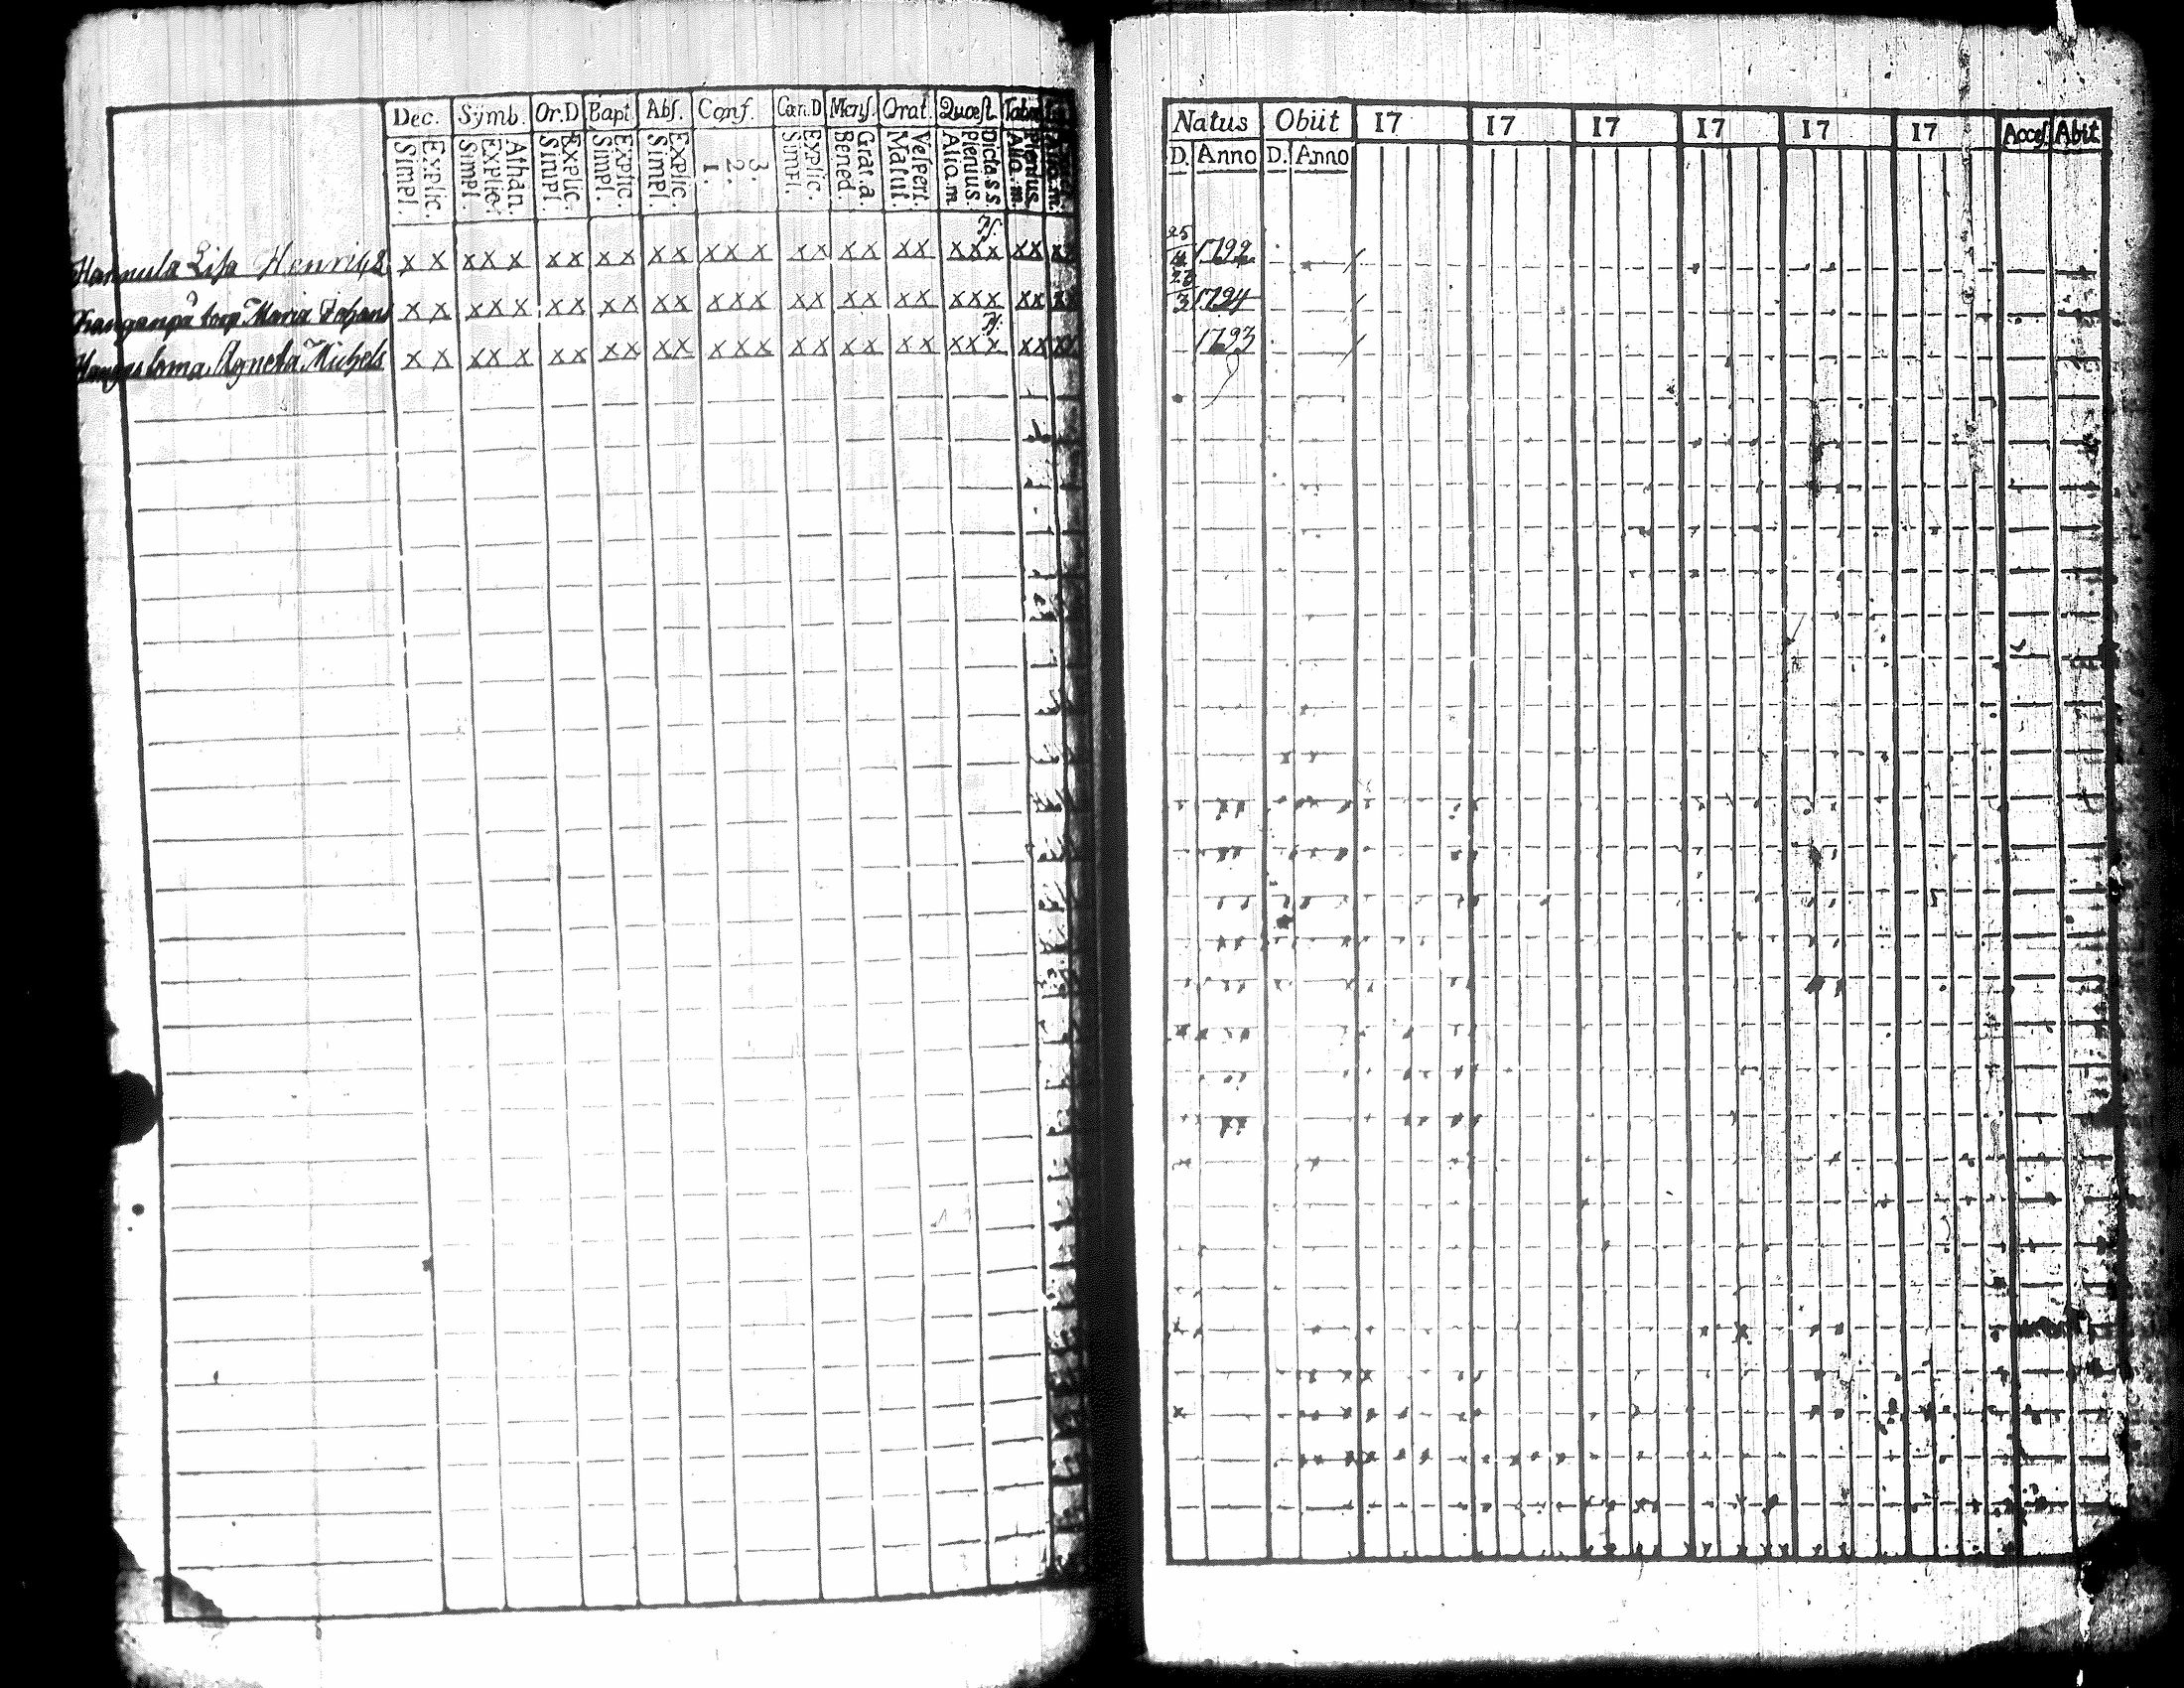 Dec. Symb. Or.D Bapt. Abs. Conf. Cœn.D Mens. Orat. Quœst. Tabu
Simpl. Explic. Simpl. Explic. Athan. Simpl. Explic. Simpl. Explic. Simpl. Explic. 1. 2. 3. Simpl. Explic. Bened. Grat.a. Matut Vespert. Alia.m. Plenius. Dicta.s.s. Alia.m. Plenius
Hannula Lisa Henrics x x xx x xx xx xx xxx xx xx xx xxx xx xx
torp Maria Johans x x xxx xx xx xx xxx xx xx xx xxx xx xx
Agneta Michels x x xx x xx xx xx xxx xx xx xx xxx xx xx
Natus Obiit 17 17 17 17 17 17 Acces. Abit
D. Anno D. Anno
25
4 1792
3 1794
1793